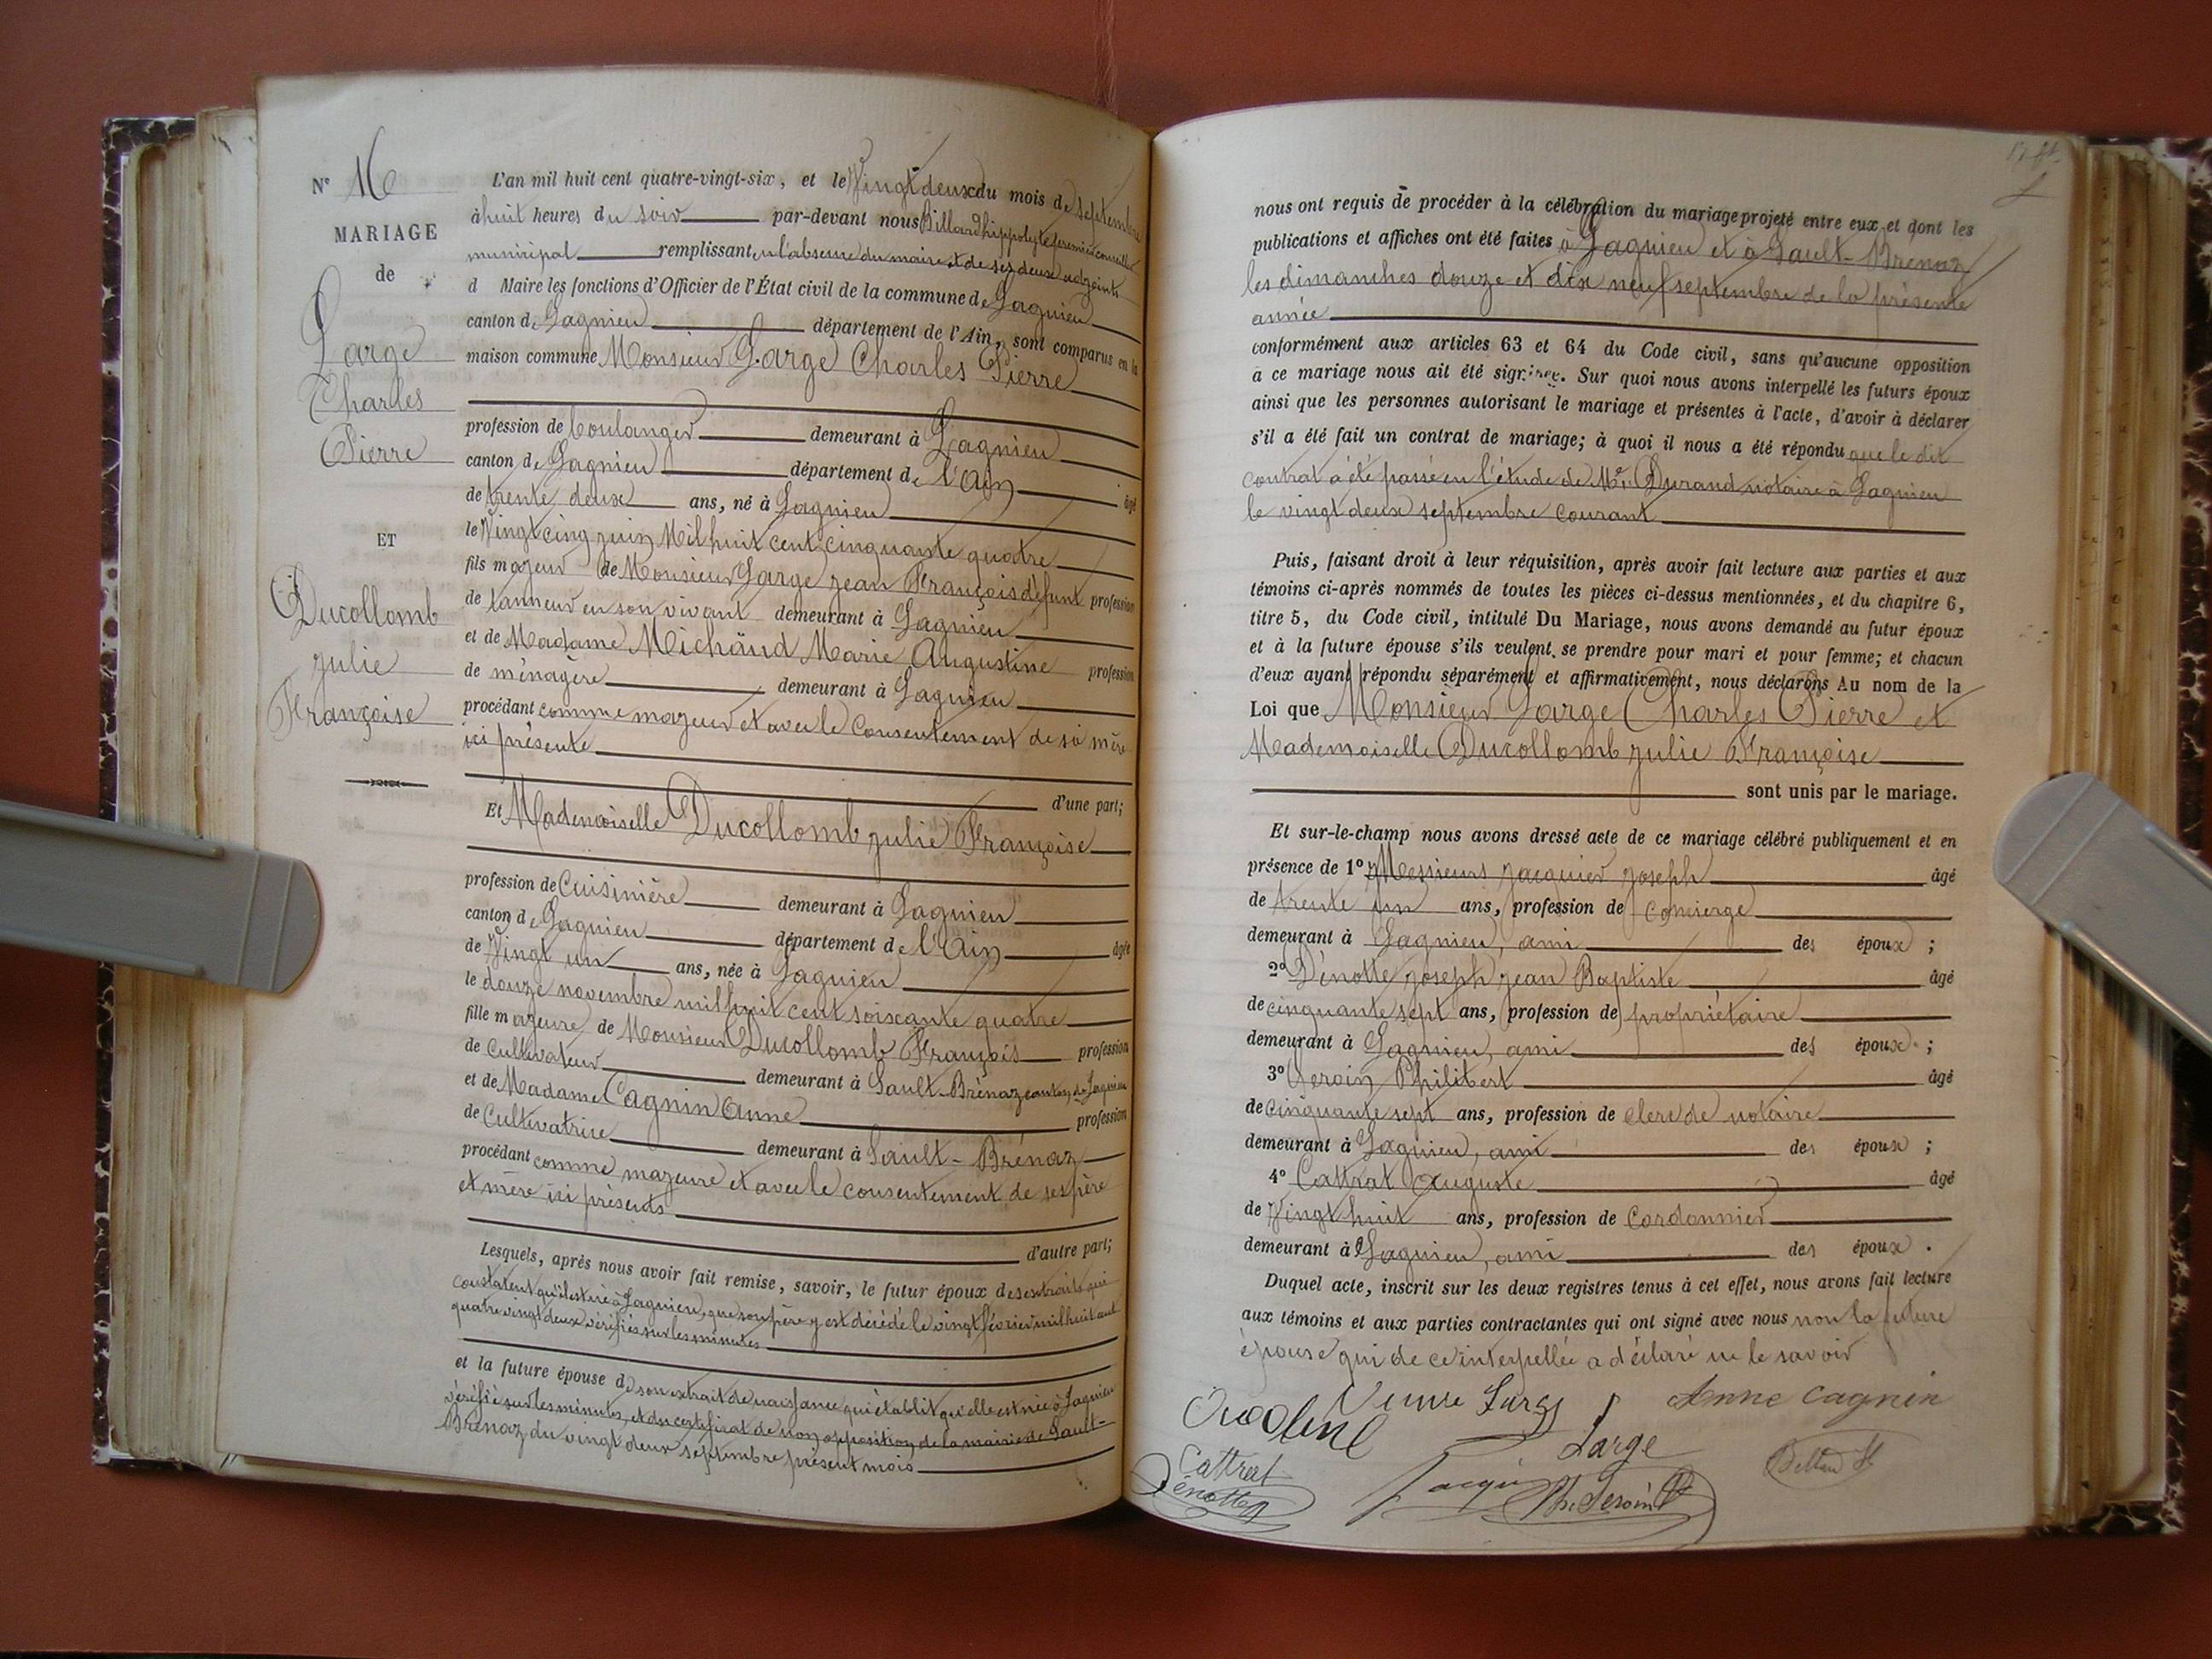 N° 16
MARIAGE
de
Large
Charles
Pierre
ET
Ducollomb
Julie
Françoise
L'an mil huit cent quatre-vingt-six, et le Vingt deux du mois de septembre
à huit heures du soir par-devant nous Billiard hippolyte premier conseiller
municipal remplissant en l'absence du maire et de ses deux adjoints
d Maire les fonctions d'Officier de l'État civil de la commune de Lagnieu
canton de Lagnieu département de l'Ain, sont comparus en la
maison commune Monsieur Large Charles Pierre
profession de boulanger demeurant à Lagnieu
canton de Lagnieu département de l'Ain âgé
de trente deux ans, né à Lagnieu
le Vingt cinq juin Mil huit cent cinquante quatre
fils majeur de Monsieur Large Jean François défunt profession
de tanneur en son vivant demeurant à Lagnieu
et de Madame Michaud Marie Augustine profession
de ménagère demeurant à Lagnieu
procédant comme majeur et avec le consentement de sa mère
ici présente
d'une part;
Et Mademoiselle Ducollomb Julie Françoise
profession de Cuisinière demeurant à Lagnieu
canton de Lagnieu département de l'Ain âgée
de Vingt un ans, née à Lagnieu
le douze novembre mil huit cent soixante quatre
fille majeure de Monsieur Ducollomb François profession
de Cultivateur demeurant à Sault-Brénaz canton de Lagnieu
et de Madame Cagnin Anne profession
de Cultivatrice demeurant à Sault-Brénaz
procédant comme majeure et avec le consentement de ses père
et mère ici présents
d'autre part;
Lesquels, après nous avoir fait remise, savoir, le futur époux des extraits qui
constatent qu'il est né à Lagnieu, que son père y est décédé le vingt février mil huit cent
quatre vingt deux vérifiés sur les minutes
et la future épouse de son extrait de naissance qui établit qu'elle est née à Lagnieu
vérifié sur les minutes, et du certificat de non opposition de la mairie de Sault-
Brénaz du vingt deux septembre présent mois
nous ont requis de procéder à la célébration du mariage projeté entre eux et dont les
publications et affiches ont été faites à Lagnieu et à Sault-Brénaz
les dimanches douze et dix neuf septembre de la présente
année
conformément aux articles 63 et 64 du Code civil, sans qu'aucune opposition
à ce mariage nous ait été signifiée. Sur quoi nous avons interpellé les futurs époux
ainsi que les personnes autorisant le mariage et présentes à l'acte, d'avoir à déclarer
s'il a été fait un contrat de mariage; à quoi il nous a été répondu que le dit
contrat a été passé en l'étude de Me Durand notaire à Lagnieu
le vingt deux septembre courant
Puis, faisant droit à leur réquisition, après avoir fait lecture aux parties et aux
témoins ci-après nommés de toutes les pièces ci-dessus mentionnées, et du chapitre 6,
titre 5, du Code civil, intitulé Du Mariage, nous avons demandé au futur époux
et à la future épouse s'ils veulent se prendre pour mari et pour femme; et chacun
d'eux ayant répondu séparément et affirmativement, nous déclarons Au nom de la
Loi que Monsieur Large Charles Pierre et
Mademoiselle Ducollomb Julie Françoise
sont unis par le mariage.
Et sur-le-champ nous avons dressé acte de ce mariage célébré publiquement et en
présence de 1° Messieurs Jacquier Joseph âgé
de trente un ans, profession de concierge
demeurant à Lagnieu, ami des époux ;
2° Dénotte Joseph Jean Baptiste âgé
de cinquante sept ans, profession de propriétaire
demeurant à Lagnieu, ami des époux ;
3° Seroin Philibert âgé
de cinquante sept ans, profession de clerc de notaire
demeurant à Lagnieu, ami des époux ;
4° Cattrat Auguste âgé
de Vingt huit ans, profession de Cordonnier
demeurant à Lagnieu, ami des époux .
Duquel acte, inscrit sur les deux registres tenus à cet effet, nous avons fait lecture
aux témoins et aux parties contractantes qui ont signé avec nous non la future
épouse qui de ce interpellée a déclaré ne le savoir
Veuve Large Anne Cagnin
Large
Cattrat
Dénotte Jacquier Ph. Seroin